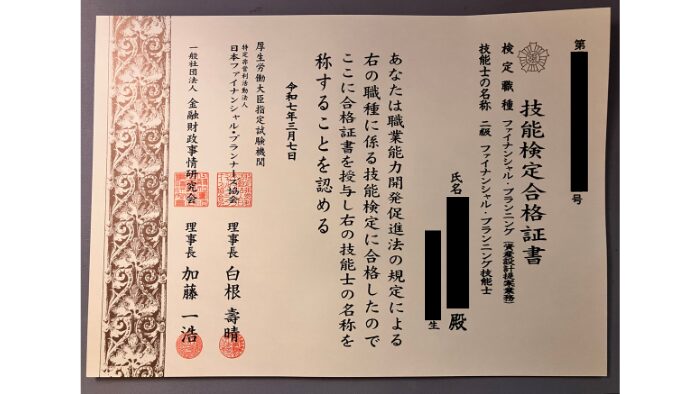 第
号
技能検定合格証書
検定職種 ファイナンシャル・プランニング(資産設計提案業務)
技能士の名称 二級 ファイナンシャル・プランニング技能士
氏名
殿
生
あなたは職業能力開発促進法の規定による
右の職種に係る技能検定に合格したので
ここに合格証書を授与し右の技能士の名称を
称することを認める
令和七年三月七日
厚生労働大臣指定試験機関
特定非営利活動法人
日本ファイナンシャル・プランナーズ協会
理事長 白根壽晴
一般社団法人 金融財政事情研究会
理事長 加藤一浩